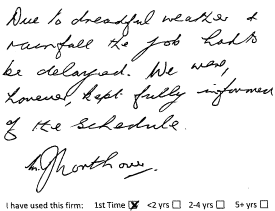 Due to dreadful weather &
rainfall the job had to
be delayed. We were,
however, kept fully informed
of the schedule.
I have used this firm: 1st Time ☒ <2 yrs ☐ 2-4 yrs ☐ 5+ yrs ☐